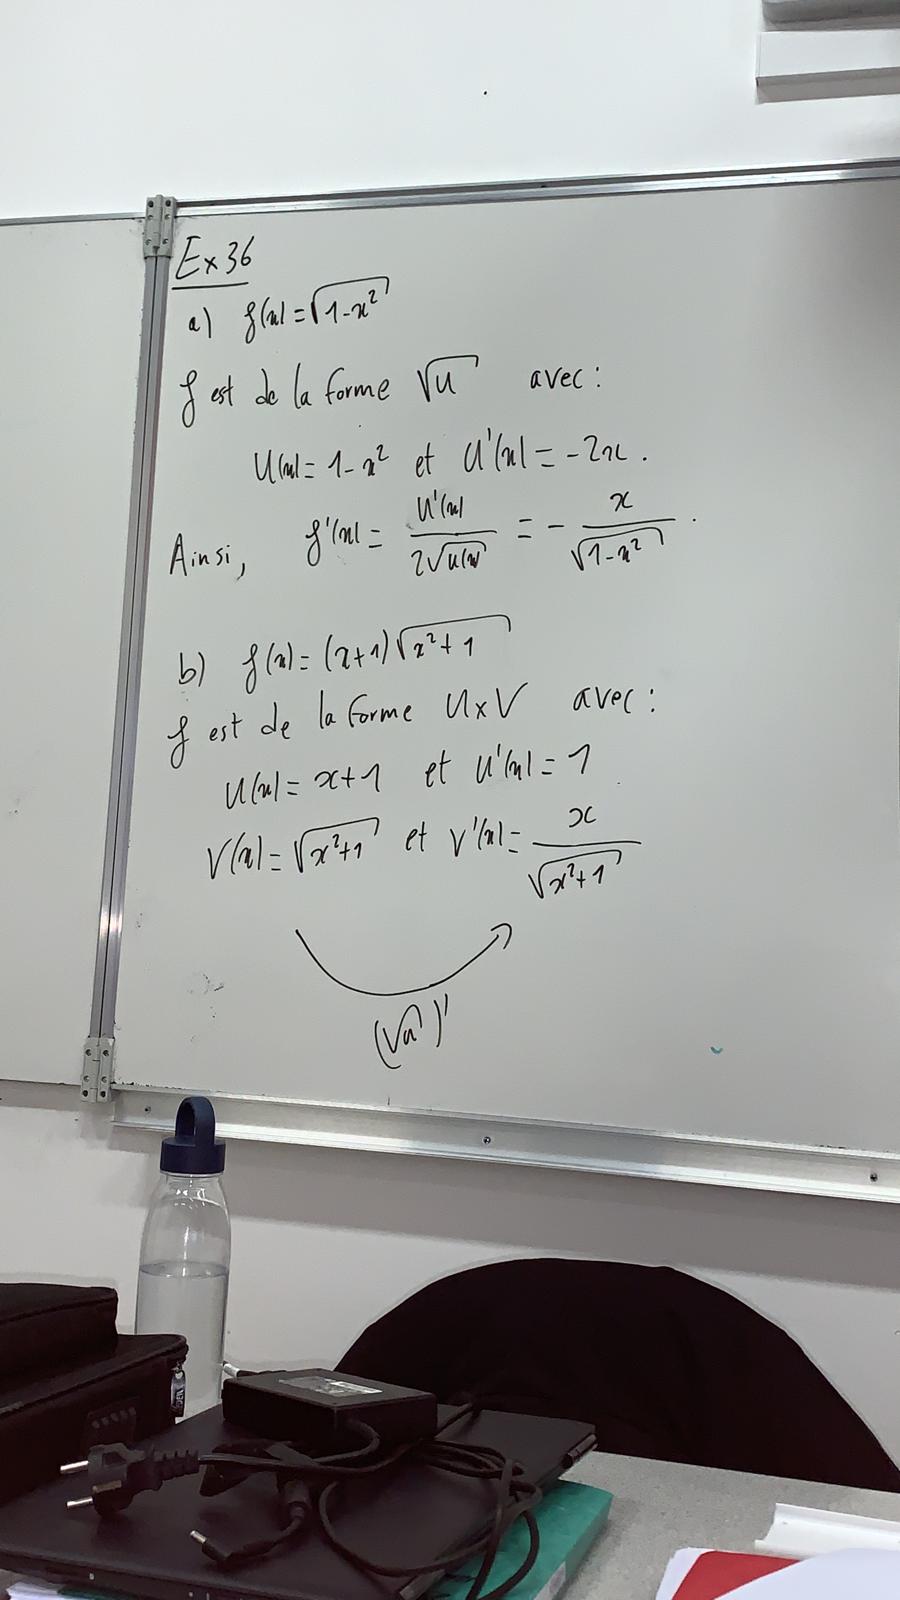 Ex 36
a) f(x) = √(1-x²)
f est de la forme √u avec :
u(x) = 1-x² et u'(x) = -2x.
Ainsi, f'(x) = u'(x)/(2√u(x)) = - x/√(1-x²).
b) f(x) = (x+1)√(x²+1)
f est de la forme u×v avec :
u(x) = x+1 et u'(x) = 1
v(x) = √(x²+1) et v'(x) = x/√(x²+1)
(√u)'